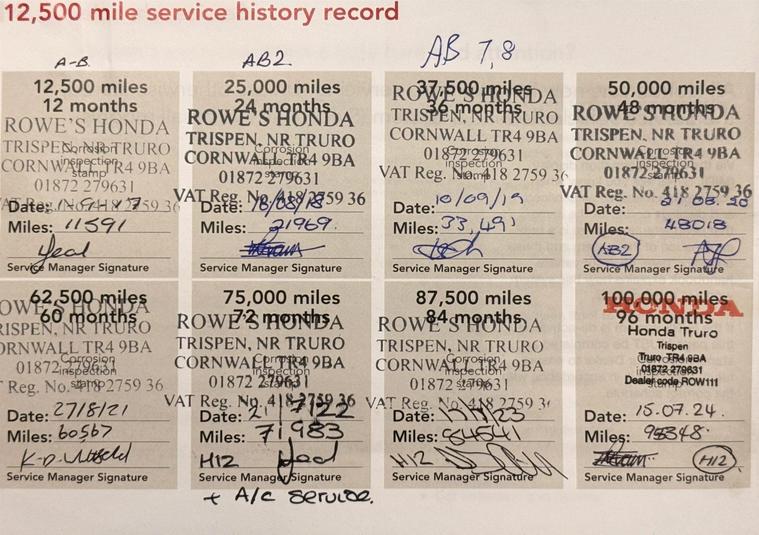 12,500 mile service history record
A-B
AB2
AB 7,8
12,500 miles
12 months
ROWE'S HONDA
TRISPEN, NR TRURO
CORNWALL TR4 9BA
Corrosion
inspection
stamp
01872 279631
VAT Reg. No. 418 2759 36
Date:
Miles: 11591
Service Manager Signature
25,000 miles
24 months
ROWE'S HONDA
TRISPEN, NR TRURO
CORNWALL TR4 9BA
Corrosion
inspection
stamp
01872 279631
VAT Reg. No. 418 2759 36
Date:
Miles: 21969.
Service Manager Signature
37,500 miles
36 months
ROWE'S HONDA
TRISPEN, NR TRURO
CORNWALL TR4 9BA
Corrosion
inspection
stamp
01872 279631
VAT Reg. No. 418 2759 36
Date: 10/09/19
Miles: 33,491
Service Manager Signature
50,000 miles
48 months
ROWE'S HONDA
TRISPEN, NR TRURO
CORNWALL TR4 9BA
Corrosion
inspection
stamp
01872 279631
VAT Reg. No. 418 2759 36
Date: 21 08. 20
Miles: 48018
AB2
Service Manager Signature
62,500 miles
60 months
ROWE'S HONDA
TRISPEN, NR TRURO
CORNWALL TR4 9BA
Corrosion
inspection
stamp
01872 279631
VAT Reg. No. 418 2759 36
Date: 27/8/21
Miles: 60567
Service Manager Signature
75,000 miles
72 months
ROWE'S HONDA
TRISPEN, NR TRURO
CORNWALL TR4 9BA
Corrosion
inspection
stamp
01872 279631
VAT Reg. No. 418 2759 36
Date:
Miles: 71983
H12
Service Manager Signature
+ A/C Service.
87,500 miles
84 months
ROWE'S HONDA
TRISPEN, NR TRURO
CORNWALL TR4 9BA
Corrosion
inspection
stamp
01872 279631
VAT Reg. No. 418 2759 36
Date:
Miles: 84541
H12
Service Manager Signature
100,000 miles
96 months
HONDA
Honda Truro
Trispen
Truro TR4 9BA
Corrosion
inspection
stamp
01872 279631
Dealer code ROW111
Date: 15.07.24.
Miles:
H12
Service Manager Signature